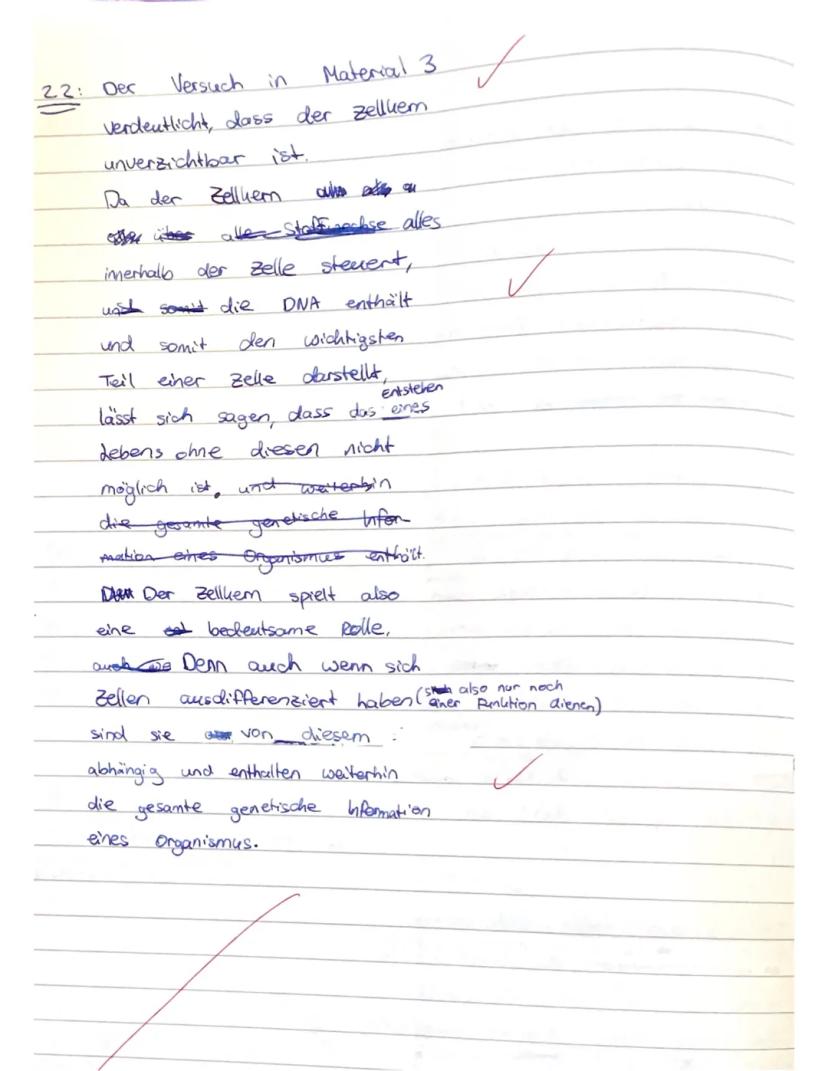 2.2: Der Versuch in Material 3
verdeutlicht, dass der Zellkern
unverzichtbar ist.
Da der Zellkern
über alle Stoffwechse alles
innerhalb der Zelle steuert,
und somit die DNA enthält
und somit den wichtigsten
Teil einer Zelle darstellt,
Entstehen
lässt sich sagen, dass das eines
Lebens ohne diesen nicht
möglich ist. und weiterhin
die gesamte genetische Infor-
mation eines Organismus enthält.
Der Zellkern spielt also
eine bedeutsame Rolle,
auch Denn auch wenn sich
Zellen ausdifferenziert haben (also nur noch
einer Funktion dienen)
sind sie von diesem
abhängig und enthalten weiterhin
die gesamte genetische Information
eines Organismus.